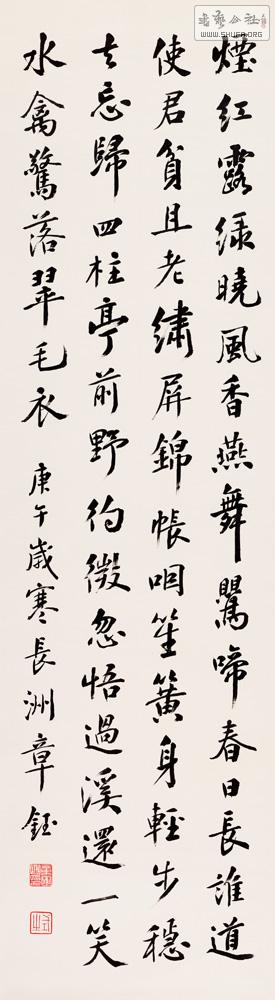 煙紅露綠曉風香燕舞鶯啼春日長誰道
使君貧且老繡屏錦帳咽笙簧身輕步穩
去忘歸四柱亭前野彴微忽悟過溪還一笑
水禽驚落翠毛衣 庚午歲寒長洲章鈺
WWW.SHUGE.ORG